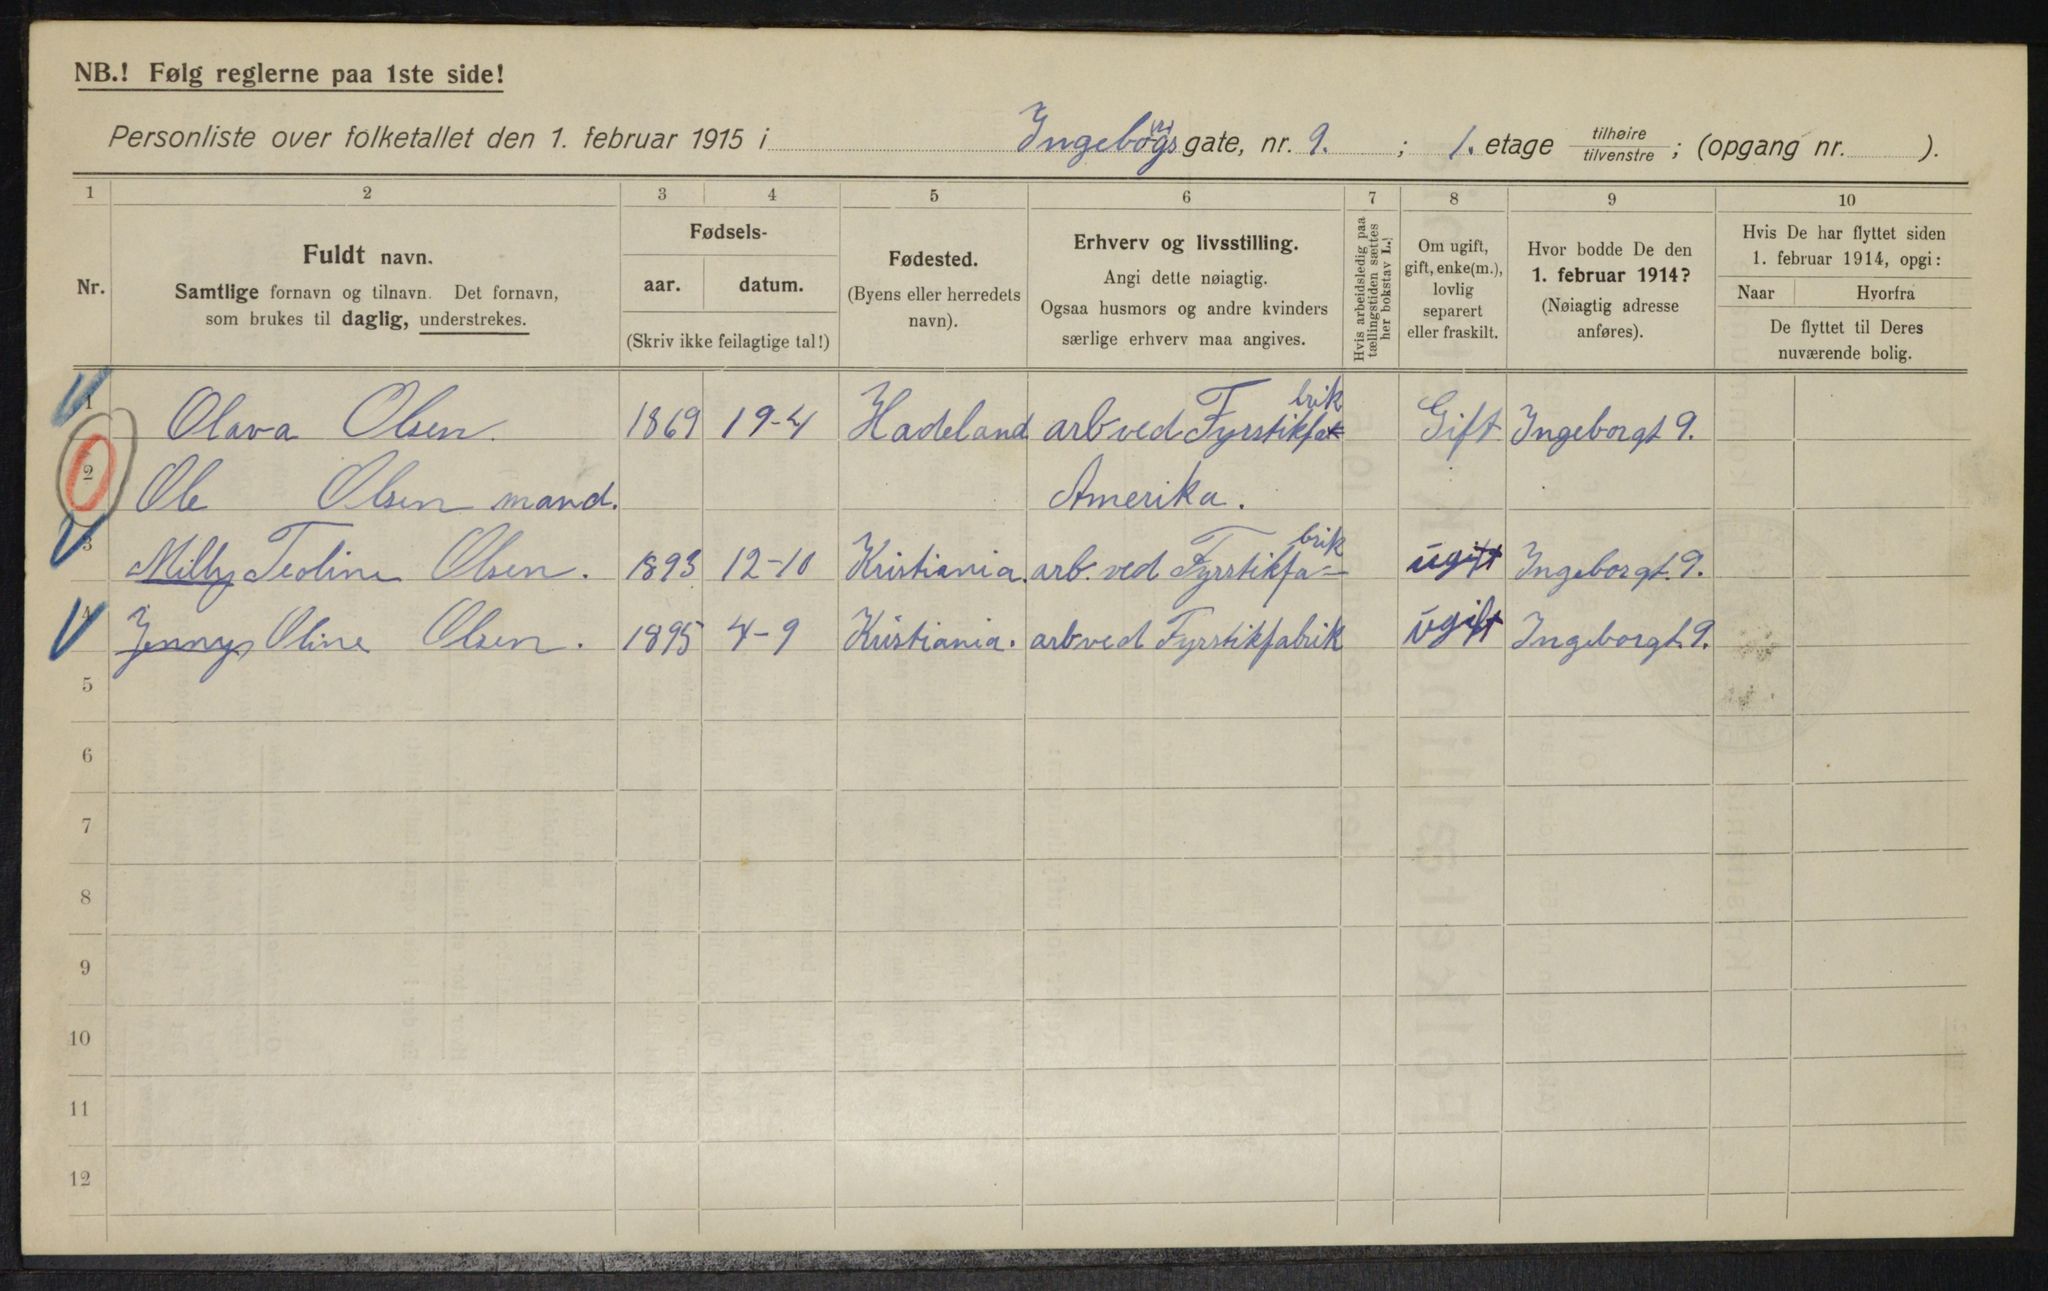 NB.! Følg reglerne paa 1ste side!
Personliste over folketallet den 1. februar 1915 i Ingeborgs gate, nr. 9. ; 1. etage tilhøire/tilvenstre ; (opgang nr. ).
1 2 3 4 5 6 7 8 9 10
Nr.
Fuldt navn.
Samtlige fornavn og tilnavn. Det fornavn,
som brukes til daglig, understrekes.
Fødsels-
aar. datum.
(Skriv ikke feilagtige tal!)
Fødested.
(Byens eller herredets
navn).
Erhverv og livsstilling.
Angi dette nøiagtig.
Ogsaa husmors og andre kvinders
særlige erhverv maa angives.
Hvis arbeidsledig paa
tællingstiden sættes
her bokstav L.!
Om ugift,
gift, enke(m.),
lovlig
separert
eller fraskilt.
Hvor bodde De den
1. februar 1914?
(Nøiagtig adresse
anføres).
Hvis De har flyttet siden
1. februar 1914, opgi:
Naar Hvorfra
De flyttet til Deres
nuværende bolig.
1 Olava Olsen. 1869 19-4 Hadeland arb ved Fyrstikfabrik Gift Ingeborgt 9.
2 Ole Olsen mand. Amerika.
3 Milly Teoline Olsen. 1893 12-10 Kristiania. arb. ved Fyrstikfabrik ugift Ingeborgt. 9.
4 Jenny Oline Olsen. 1895 4-9 Kristiania. arb ved Fyrstikfabrik ugift Ingeborgt. 9.
5
6
7
8
9
10
11
12